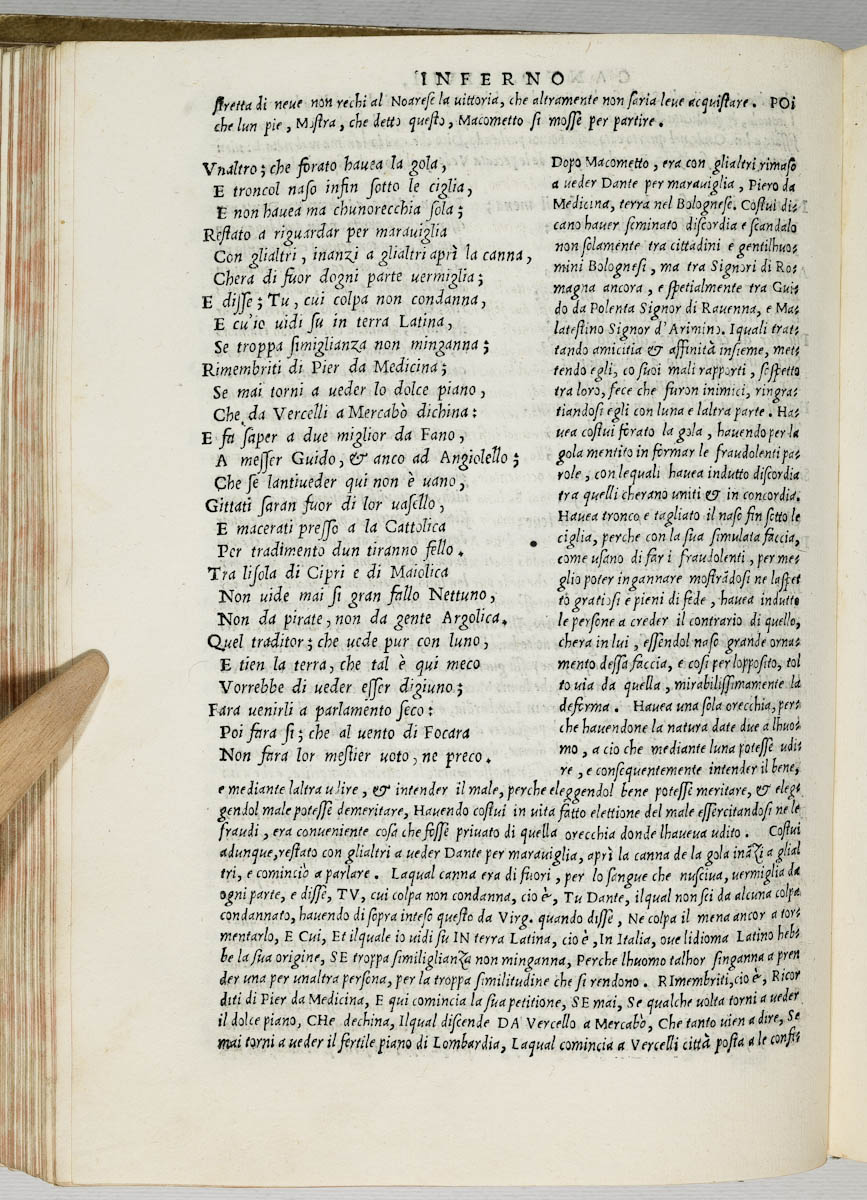 INFERNO
stretta di neue non rechi al Noarese la uittoria, che altramente non saria leue acquistare. POi
che lun pie, Mostra, che detto questo, Macometto si mosse per partire.
Vnaltro; che forato hauea la gola,
E troncol naso infin sotto le ciglia,
E non hauea ma chunorecchia sola;
Restato a riguardar per marauiglia
Con glialtri, inanzi a glialtri aprì la canna,
Chera di fuor dogni parte uermiglia;
E disse; Tu, cui colpa non condanna,
E cu'io uidi su in terra Latina,
Se troppa simiglianza non minganna;
Rimembriti di Pier da Medicina;
Se mai torni a ueder lo dolce piano,
Che da Vercelli a Mercabò dichina:
E fa saper a due miglior da Fano,
A messer Guido, & anco ad Angiolello;
Che se lantiueder qui non è uano,
Gittati saran fuor di lor uasello,
E macerati presso a la Cattolica
Per tradimento dun tiranno fello.
Tra lisola di Cipri e di Maiolica
Non uide mai si gran fallo Nettuno,
Non da pirate, non da gente Argolica.
Quel traditor; che uede pur con luno,
E tien la terra, che tal è qui meco
Vorrebbe di ueder esser digiuno;
Fara uenirli a parlamento seco:
Poi fara si; che al uento di Focara
Non fara lor mestier uoto, ne preco.
Dopo Macometto, era con glialtri rimaso
a ueder Dante per marauiglia, Piero da
Medicina, terra nel Bolognese. Costui di-
cano hauer seminato discordia e scandalo
non solamente tra cittadini e gentilhuo-
mini Bolognesi, ma tra Signori di Ro-
magna ancora, e spetialmente tra Gui-
do da Polenta Signor di Rauenna, e Ma-
latestino Signor d'Arimino. I quali trat-
tando amicitia & affinità insieme, met-
tendo egli, co suoi mali rapporti, sospetto
tra loro, fece che furon inimici, ringra-
tiandosi egli con luna e laltra parte. Ha-
uea costui forato la gola, hauendo per la
gola mentito in formar le fraudolenti pa-
role, con lequali hauea indutto discordia
tra quelli cherano uniti & in concordia.
Hauea tronco e tagliato il naso fin sotto le
ciglia, perche con la sua simulata faccia,
come usano di far i fraudolenti, per me-
glio poter ingannare mostrãdosi ne laspet
to gratiosi e pieni di fede, hauea indutto
le persone a creder il contrario di quello,
chera in lui, essendol naso grande orna-
mento dessa faccia, e cosi per lopposito, tol
to uia da quella, mirabilissimamente la
deforma. Hauea una sola orecchia, per-
che hauendone la natura date due a lhuo-
mo, a cio che mediante luna potesse udi-
re, e consequentemente intender il bene,
e mediante laltra udire, & intender il male, perche eleggendol bene potesse meritare, & eleg-
gendol male potesse demeritare, Hauendo costui in uita fatto elettione del male essercitandosi ne le
fraudi, era conueniente cosa che fosse priuato di quella orecchia donde lhaueua udito. Costui
adunque, restato con glialtri a ueder Dante per marauiglia, aprì la canna de la gola inãzi a glial
tri, e cominciò a parlare. Laqual canna era di fuori, per lo sangue che nusciua, uermiglia da
ogni parte, e disse, TV, cui colpa non condanna, cio è, Tu Dante, ilqual non sei da alcuna colpa
condannato, hauendo di sopra inteso questo da Virg. quando disse, Ne colpa il mena ancor a tor-
mentarlo, E Cui, Et ilquale io uidi su IN terra Latina, cio è, In Italia, oue lidioma Latino heb-
be la sua origine, SE troppa similiglianza non minganna, Perche lhuomo talhor singanna a pren
der una per unaltra persona, per la troppa similitudine che si rendono. RImembriti, cio è, Ricor
diti di Pier da Medicina, E qui comincia la sua petitione, SE mai, Se qualche uolta torni a ueder
il dolce piano, CHe dechina, Ilqual discende DA Vercello a Mercabò, Che tanto uien a dire, Se
mai torni a ueder il fertile piano di Lombardia, Laqual comincia a Vercelli città posta a le confi-